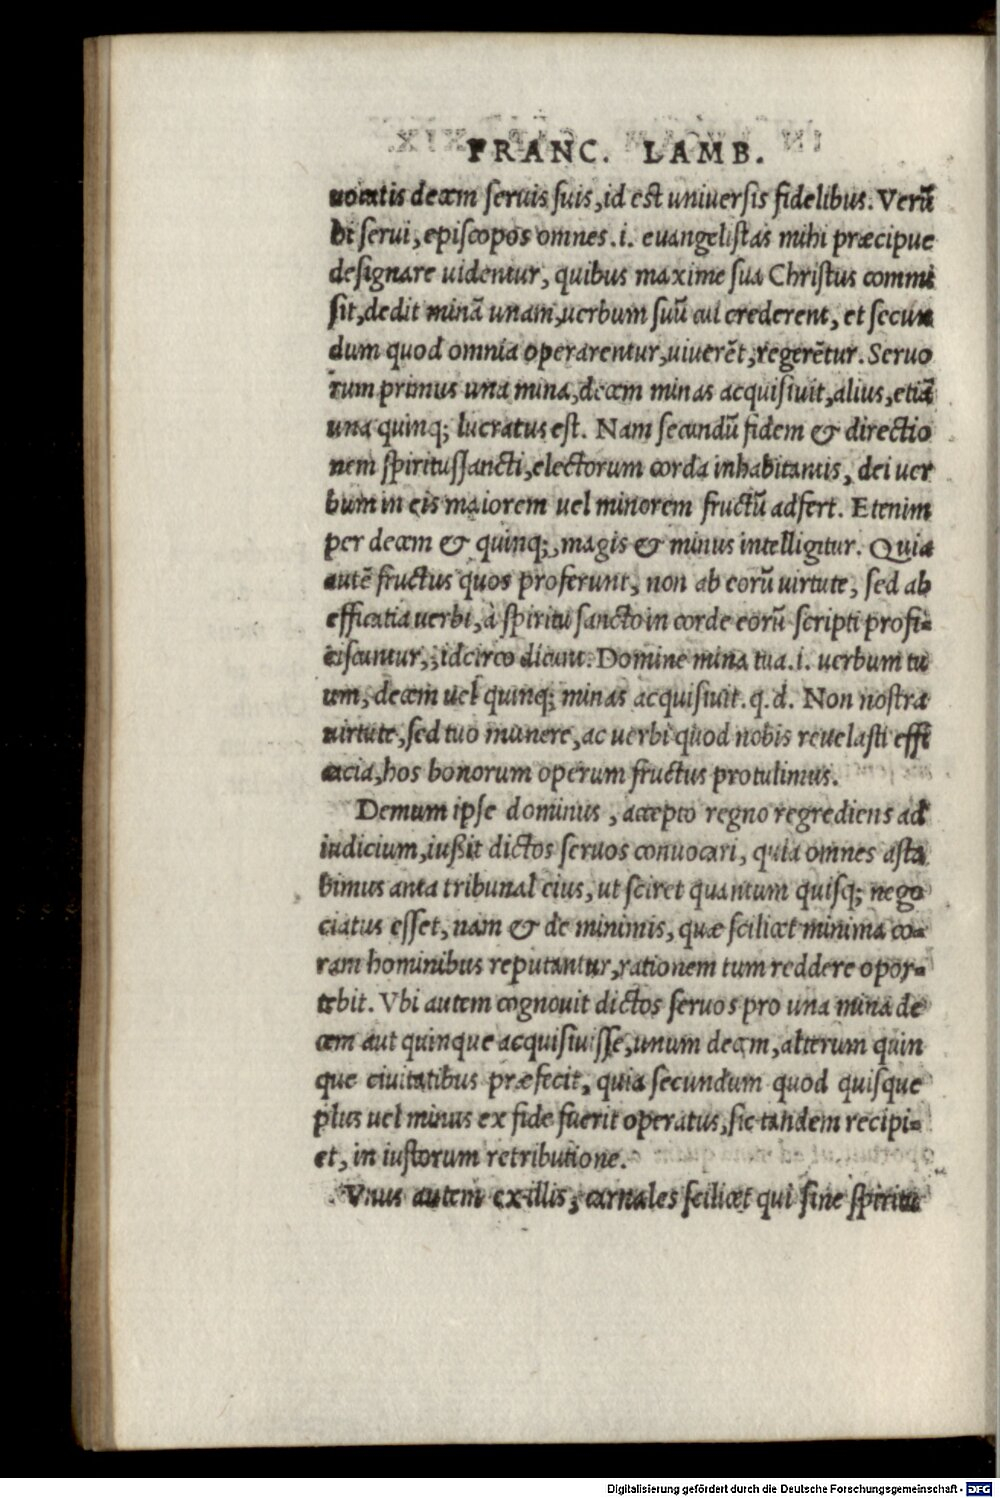 FRANC. LAMB.
uocatis decem seruis suis, id est uniuersis fidelibus. Verũ
hi serui, episcopos omnes .i. euangelistas mihi præcipue
designare uidentur, quibus maxime sua Christus commi
sit, dedit minã unam, uerbum suũ cui crederent, et secun
dum quod omnia operarentur, uiuerẽt, regerẽtur. Seruo
rum primus una mina, decem minas acquisiuit, alius, etiã
una quinq; lucratus est. Nam secundũ fidem & directio
nem spiritussancti, electorum corda inhabitantis, dei uer
bum in eis maiorem uel minorem fructũ adfert. Etenim
per decem & quinq;, magis & minus intelligitur. Quia
autẽ fructus quos proferunt, non ab eorũ uirtute, sed ab
efficatia uerbi, à spiritu sancto in corde eorũ scripti profi-
ciscuntur,, idcirco dicunt. Domine mina tua .i. uerbum tu
um, decem uel quinq; minas acquisiuit. q.d. Non nostra
uirtute, sed tuo munere, ac uerbi quod nobis reuelasti effi
cacia, hos bonorum operum fructus protulimus.
Demum ipse dominus, accepto regno regrediens ad
iudicium, iußit dictos seruos conuocari, quia omnes asta
bimus anta tribunal eius, ut sciret quantum quisq; nego
ciatus esset, nam & de minimis, quæ scilicet minima co-
ram hominibus reputantur, rationem tum reddere opor-
tebit. Vbi autem cognouit dictos seruos pro una mina de
cem aut quinque acquisiuisse, unum decem, alterum quin
que ciuitatibus præfecit, quia secundum quod quisque
plus uel minus ex fide fuerit operatus, sic tandem recipi-
et, in iustorum retributione.
Vnus autem ex illis, carnales scilicet qui sine spiritu
Digitalisierung gefördert durch die Deutsche Forschungsgemeinschaft - DFG